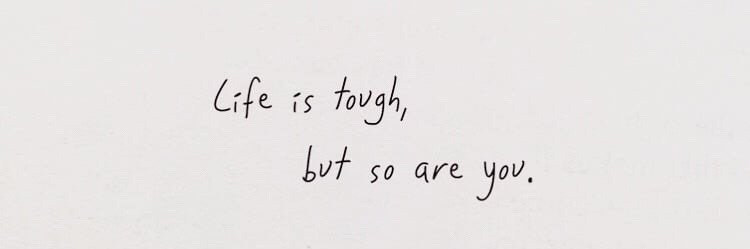 Life is tough,
but so are you.